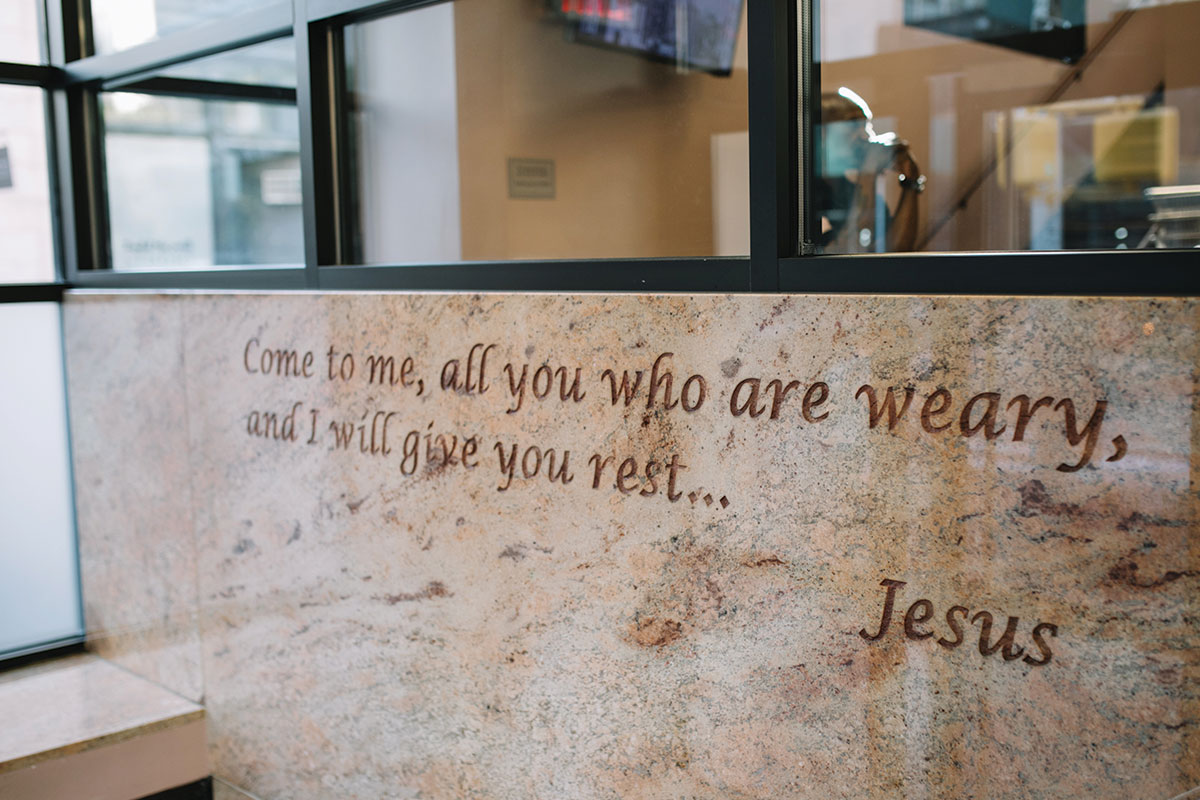 Come to me, all you who are weary,
and I will give you rest...
Jesus